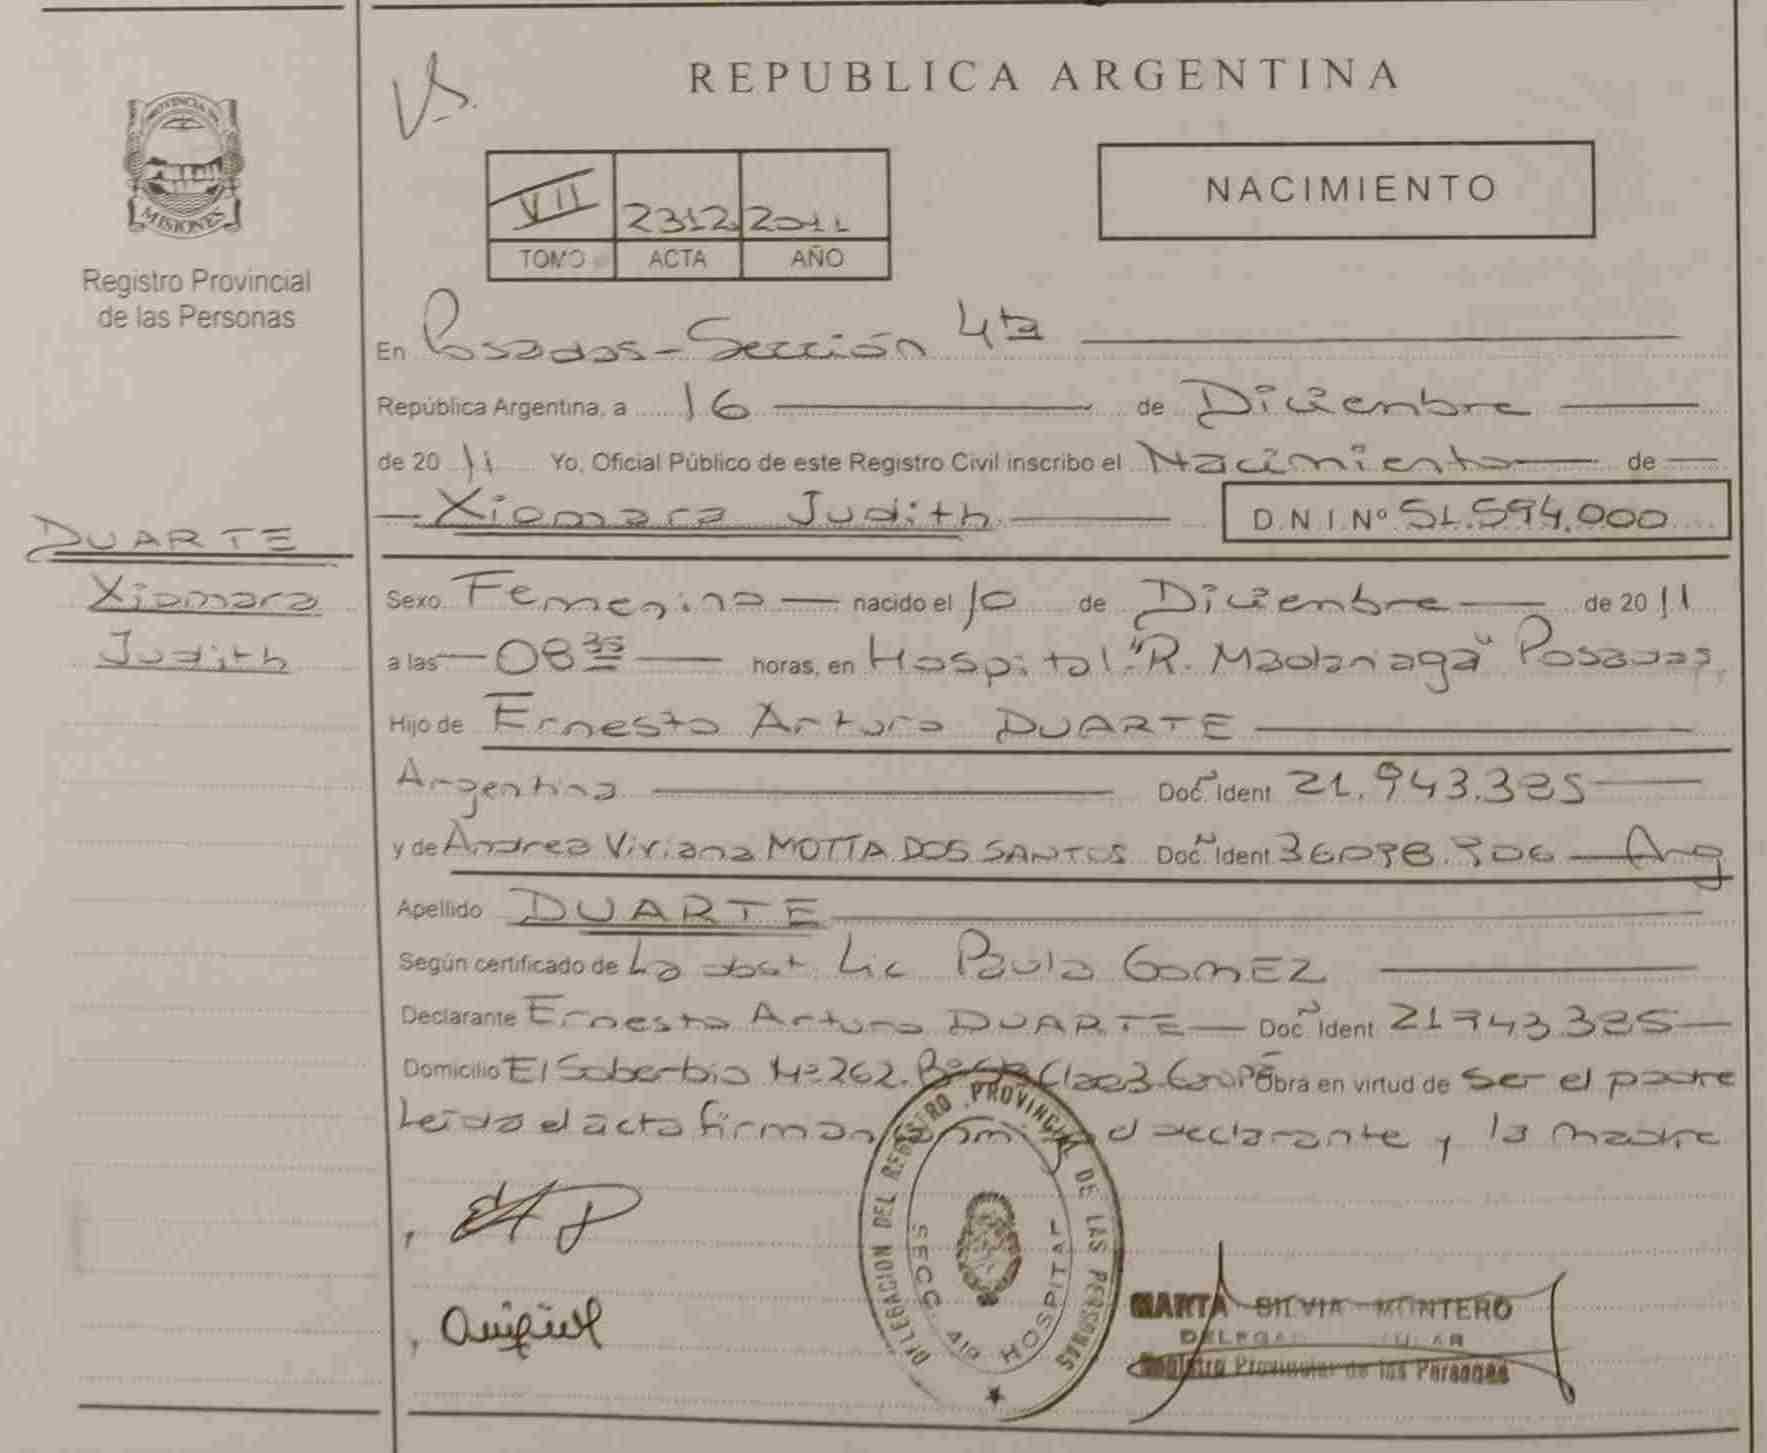 REPUBLICA ARGENTINA
PROVINCIA DE
MISIONES
Registro Provincial
de las Personas
NACIMIENTO
VII 2312 2011
TOMO ACTA AÑO
En Posadas - Sección 4ta
República Argentina, a 16 de Diciembre
de 2011 Yo, Oficial Público de este Registro Civil inscribo el Nacimiento de
Xiomara Judith D.N.I.Nº 51.594.000
DUARTE
Xiomara
Judith
Sexo Femenino nacido el 10 de Diciembre de 2011
a las 08 35 horas, en Hospital "R. Madariaga" Posadas
Hijo de Ernesto Arturo DUARTE
Argentina Doc. Ident 21.943.325
y de Andrea Viviana MOTTA DOS SANTOS Doc. Ident Arg
Apellido DUARTE
Según certificado de La obst Lic Paula GomEZ
Declarante Ernesto Arturo DUARTE Doc. Ident
Domicilio El Soberbio Nº 262. Obra en virtud de ser el padre
Leída el acta firman el declarante y la madre
DELEGACION DEL REGISTRO PROVINCIAL DE LAS PERSONAS
SECC. 4ta HOSPITAL
MARTA SILVIA MONTERO
Registro Provincial de las Personas